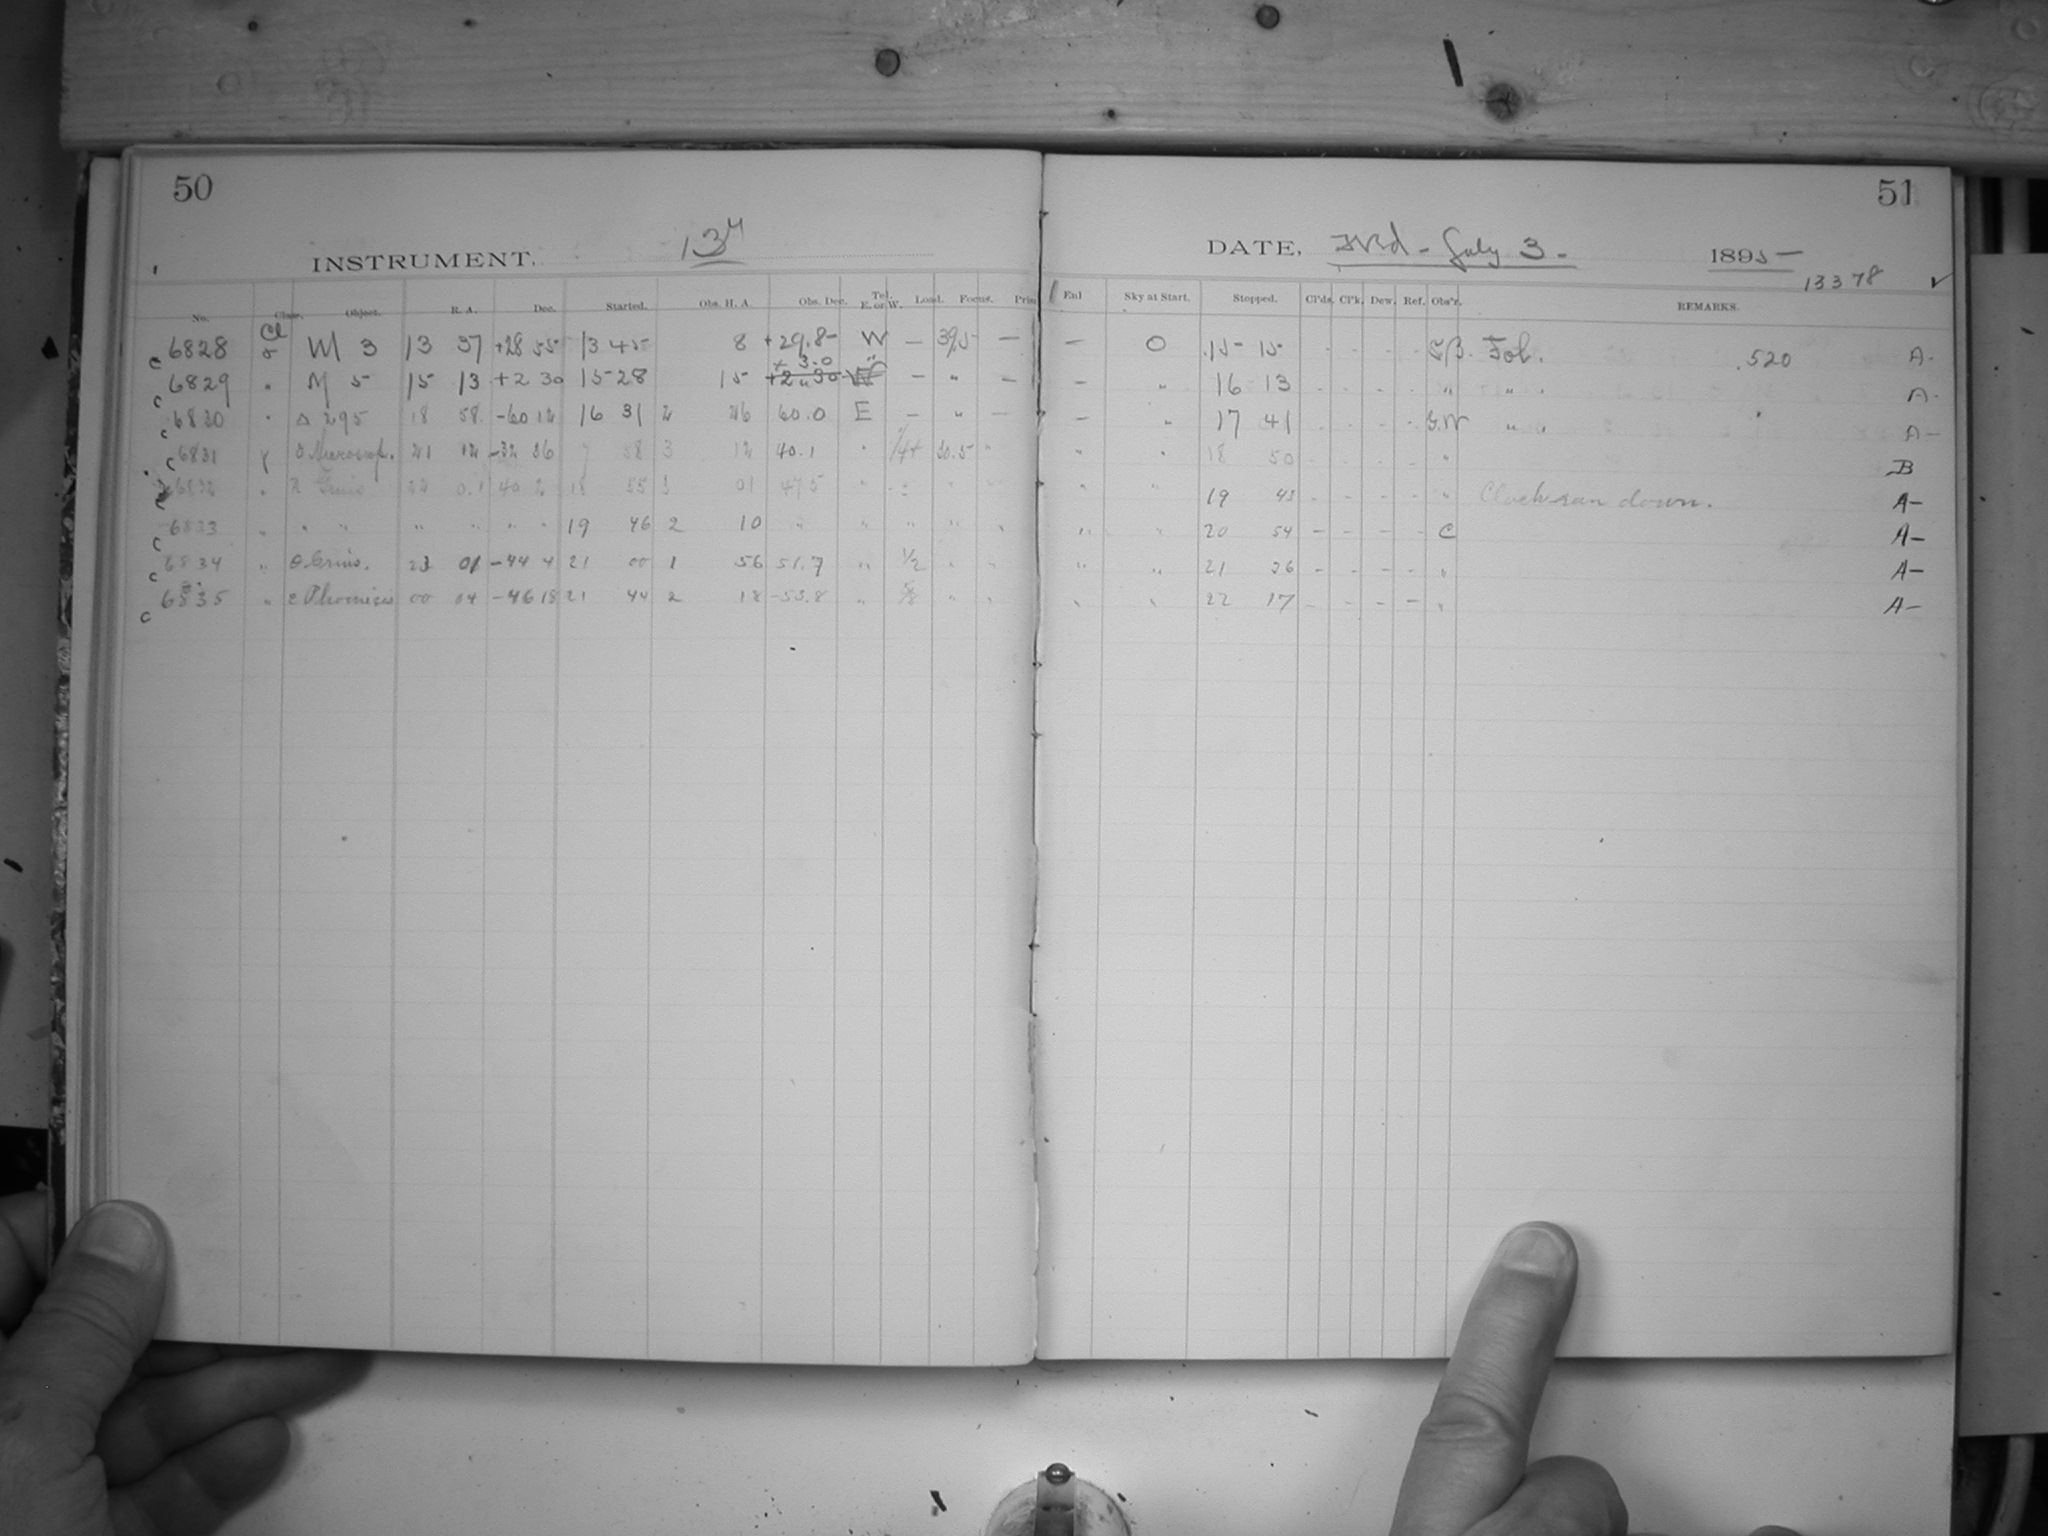 50
INSTRUMENT. 13"
No. Class. Object. R. A. Dec. Started. Obs. H. A. Obs. Dec. Tel. E. or W. Load. Focus.
c 6828 Cl M 3 13 37 +28 55 13 45 8 +29.8 W — 39.5 —
+ 3.0 "
c 6829 " M 5 15 13 +2 30 15 28 15 — " —
c 6830 " Δ 295 18 58 -60 12 16 31 2 26 60.0 E — " —
c 6831 21 12 -32 36 58 3 12 40.1 " 1/4 "
6832 "
c 6833 " " " " " " " 19 46 2 10 " " " " "
c 6834 " θ Gruis. 23 01 -44 4 21 00 1 56 51.7 " 1/2 " "
c 6835 " ε Phoenicis 00 04 -46 18 21 44 2 18 -53.8 " 5/8 " "
51
DATE, Wed - July 3 - 1895
13378 ✓
Sky at Start. Stopped. Cl'ds. Cl'k. Dew. Ref. Obs'r. REMARKS.
— O 15 15 - - - - .520 A-
— " 16 13 - - - - " " " A-
— " 17 41 - - - - " " A-
" " 18 50 - - - - " B
" " 19 43 - - - - " Clock ran down. A-
" " 20 54 - - - - C A-
" " 21 26 - - - - " A-
" " 22 17 - - - - " A-